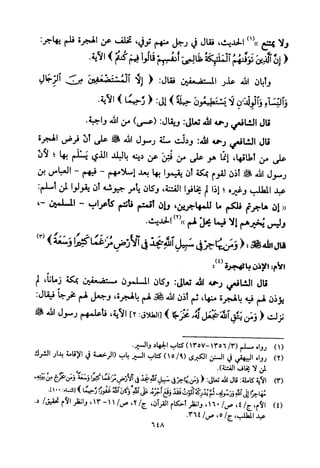 ولا يمتنع »(١) الحديث، فقال في رجل منهم توفي، تخلف عن الهجرة فلم يهاجر:
﴿ إِنَّ الَّذِينَ تَوَفَّاهُمُ الْمَلَائِكَةُ ظَالِمِي أَنفُسِهِمْ قَالُوا فِيمَ كُنتُمْ ﴾ الآية.
وأبان الله عذر المستضعفين فقال: ﴿ إِلَّا الْمُسْتَضْعَفِينَ مِنَ الرِّجَالِ
وَالنِّسَاءِ وَالْوِلْدَانِ لَا يَسْتَطِيعُونَ حِيلَةً ﴾ إلى: ﴿ رَّحِيمًا ﴾ الآية.
قال الشافعي رحمه الله تعالى: ويقال: (عسى) من الله واجبة.
قال الشافعي رحمه الله: ودلّت سنة رسول الله ﷺ على أن فرض الهجرة
على من أطاقها، إنما هو على من فُتِنَ عن دينه بالبلد الذي يُسْلِم بها ؛ لأن
رسول الله ﷺ أذن لقوم بمكة أن يقيموا بها بعد إسلامهم - فيهم - العباس بن
عبد المطلب وغيره ؛ إذا لم يخافوا الفتنة، وكان يأمر جيوشه أن يقولوا لمن أسلم:
« إن هاجرتم فلكم ما للمهاجرين، وإن أقمتم فأنتم كأعراب - المسلمين -،
وليس يُخيرهم إلا فيما يحل لهم »(٢) الحديث.
قال الله ﷻ: ﴿ وَمَن يُهَاجِرْ فِي سَبِيلِ اللَّهِ يَجِدْ فِي الْأَرْضِ مُرَاغَمًا كَثِيرًا وَسَعَةً ﴾(٣)
الأم: الإذن بالهجرة(٤):
قال الشافعي رحمه الله تعالى: وكان المسلمون مستضعفين بمكة زماناً، لم
يؤذن لهم فيه بالهجرة منها، ثم أذن الله لهم بالهجرة، وجعل لهم مخرجاً فيقال:
نزلت ﴿ وَمَن يَتَّقِ اللَّهَ يَجْعَل لَّهُ مَخْرَجًا ﴾ [الطلاق: ٢] الآية، فأعلمهم رسول الله ﷺ
(١) رواه مسلم (١٣٥٦/٣-١٣٥٧) كتاب الجهاد والسير.
(٢) رواه البيهقي في السنن الكبرى (١٥/٩) كتاب السير باب (الرخصة في الإقامة بدار الشرك
لمن لا يخاف الفتنة).
(٣) الآية كاملة: قال الله تعالى: ﴿ وَمَن يُهَاجِرْ فِي سَبِيلِ اللَّهِ يَجِدْ فِي الْأَرْضِ مُرَاغَمًا كَثِيرًا وَسَعَةً وَمَن يَخْرُجْ مِن بَيْتِهِ
مُهَاجِرًا إِلَى اللَّهِ وَرَسُولِهِ ثُمَّ يُدْرِكْهُ الْمَوْتُ فَقَدْ وَقَعَ أَجْرُهُ عَلَى اللَّهِ وَكَانَ اللَّهُ غَفُورًا رَّحِيمًا ﴾ [النساء: ١٠٠].
(٤) الأم، ج/٤، ص/١٦٠، وانظر أحكام القرآن، ج/٢، ص/١١ - ١٣، وانظر الأم تحقيق/ د.
عبد المطلب، ج/٥، ص/٣٦٤.
٦٤٨